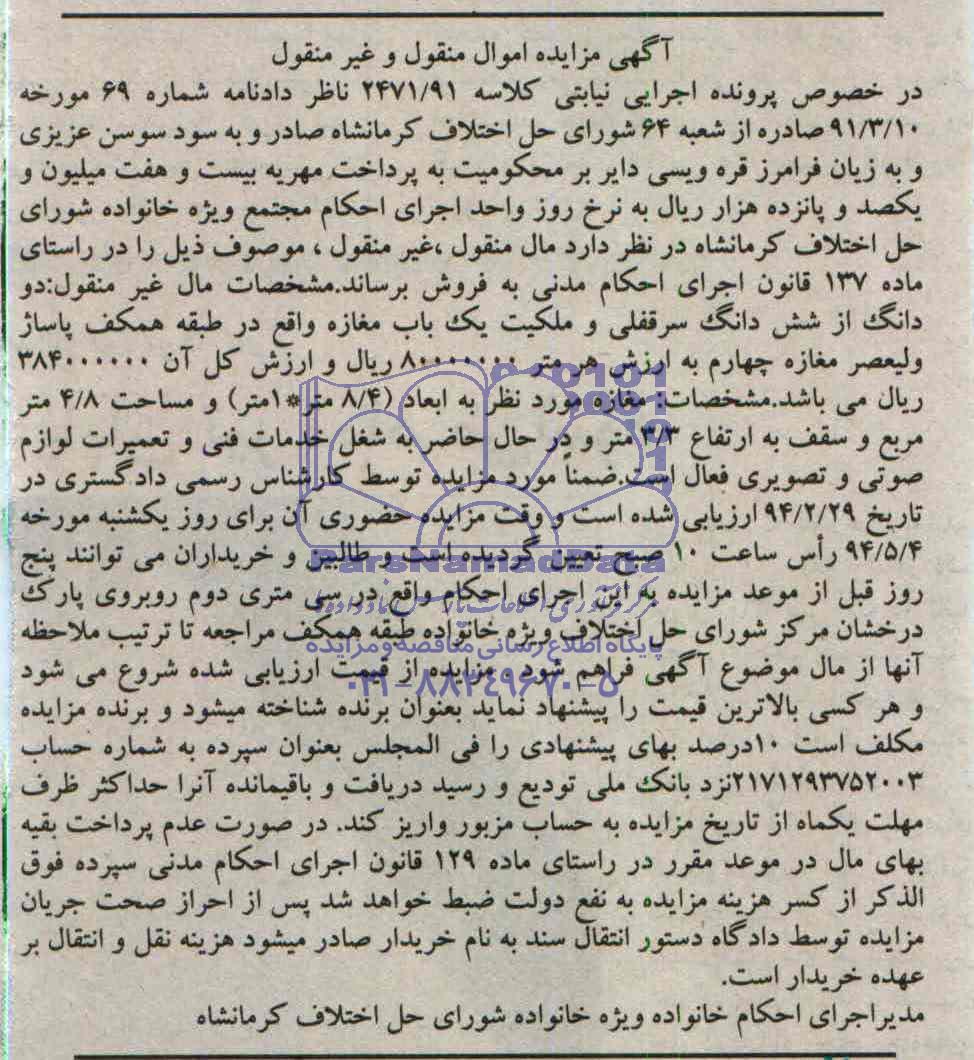 آگهی مزایده اموال منقول و غیر منقول
در خصوص پرونده اجرایی نیابتی کلاسه ۲۴۷۱/۹۱ ناظر دادنامه شماره ۶۹ مورخه
۹۱/۳/۱۰ صادره از شعبه ۶۴ شورای حل اختلاف کرمانشاه صادر و به سود سوسن عزیزی
و به زیان فرامرز قره ویسی دایر بر محکومیت به پرداخت مهریه بیست و هفت میلیون و
یکصد و پانزده هزار ریال به نرخ روز واحد اجرای احکام مجتمع ویژه خانواده شورای
حل اختلاف کرمانشاه در نظر دارد مال منقول ،غیر منقول ، موصوف ذیل را در راستای
ماده ۱۳۷ قانون اجرای احکام مدنی به فروش برساند.مشخصات مال غیر منقول:دو
دانگ از شش دانگ سرقفلی و ملکیت یک باب مغازه واقع در طبقه همکف پاساژ
ولیعصر مغازه چهارم به ارزش هر متر ۸۰۰۰۰۰۰۰ ریال و ارزش کل آن ۳۸۴۰۰۰۰۰۰
ریال می باشد.مشخصات: مغازه مورد نظر به ابعاد (۸/۴ متر*۱متر) و مساحت ۴/۸ متر
مربع و سقف به ارتفاع ۳/۳ متر و در حال حاضر به شغل خدمات فنی و تعمیرات لوازم
صوتی و تصویری فعال است.ضمناً مورد مزایده توسط کارشناس رسمی دادگستری در
تاریخ ۹۴/۲/۲۹ ارزیابی شده است و وقت مزایده حضوری آن برای روز یکشنبه مورخه
۹۴/۵/۴ رأس ساعت ۱۰ صبح تعیین گردیده است و طالبین و خریداران می توانند پنج
ParsNamadData
روز قبل از موعد مزایده به این اجرای احکام واقع در سی متری دوم روبروی پارک
درخشان مرکز شورای حل اختلاف ویژه خانواده طبقه همکف مراجعه تا ترتیب ملاحظه
پایگاه اطلاع رسانی مناقصه و مزایده
آنها از مال موضوع آگهی فراهم شود . مزایده از قیمت ارزیابی شده شروع می شود
۰۲۱-۸۸۳۴۹۶۷۰-۵
و هر کسی بالاترین قیمت را پیشنهاد نماید بعنوان برنده شناخته میشود و برنده مزایده
مکلف است ۱۰درصد بهای پیشنهادی را فی المجلس بعنوان سپرده به شماره حساب
۲۱۷۱۲۹۳۷۵۲۰۰۳نزد بانک ملی تودیع و رسید دریافت و باقیمانده آنرا حداکثر ظرف
مهلت یکماه از تاریخ مزایده به حساب مزبور واریز کند. در صورت عدم پرداخت بقیه
بهای مال در موعد مقرر در راستای ماده ۱۲۹ قانون اجرای احکام مدنی سپرده فوق
الذکر از کسر هزینه مزایده به نفع دولت ضبط خواهد شد پس از احراز صحت جریان
مزایده توسط دادگاه دستور انتقال سند به نام خریدار صادر میشود هزینه نقل و انتقال بر
عهده خریدار است.
مدیراجرای احکام خانواده ویژه خانواده شورای حل اختلاف کرمانشاه